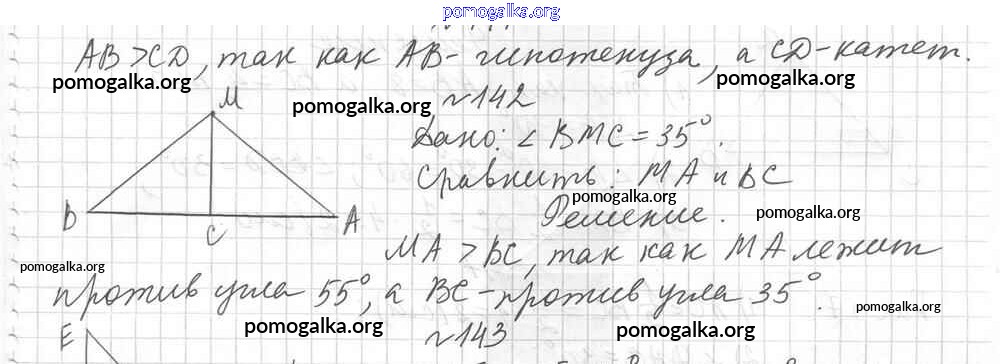 pomogalka.org
АВ > CD, так как АВ - гипотенуза, а CD - катет.
pomogalka.org
M pomogalka.org №142
Дано: ∠ BMC = 35°.
Сравнить: MA и BC
pomogalka.org
B C A Решение. pomogalka.org
MA > BC, так как MA лежит
pomogalka.org
против угла 55°, а BC - против угла 35°.
pomogalka.org
pomogalka.org pomogalka.org
E №143